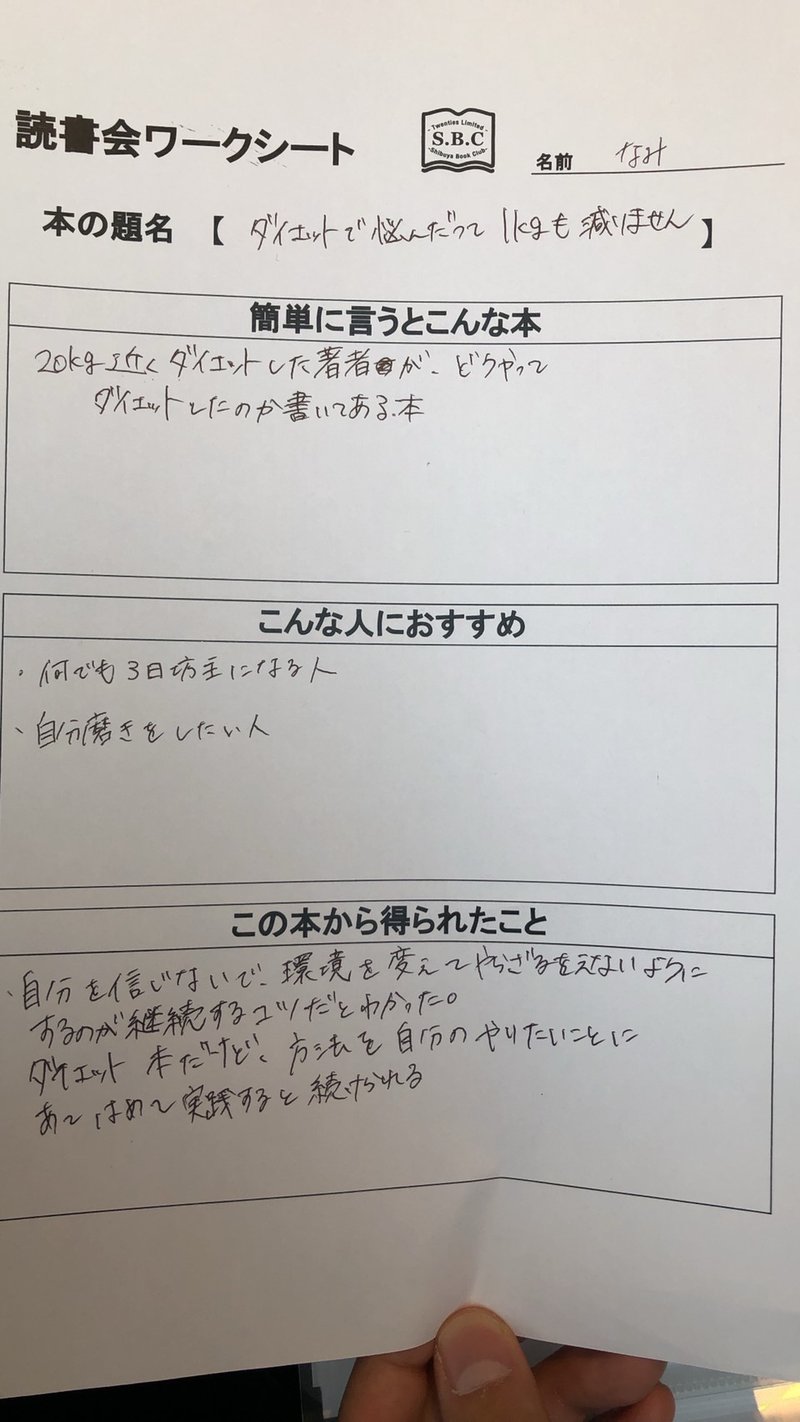 読書会ワークシート
- Twenties Limited -
S.B.C
-Shibuya Book Club-
名前 なみ
本の題名 【 ダイエットで悩んだって 1kgも 減りません 】
簡単に言うとこんな本
20kg近くダイエットした著者が、どうやって
ダイエットしたのか書いてある本
こんな人におすすめ
・何でも3日坊主になる人
、自分磨きをしたい人
この本から得られたこと
・自分を信じないで、環境を変えてやらざるをえないように
するのが継続するコツだとわかった。
ダイエット本だけど、方法を自分のやりたいことに
あてはめて実践すると続けられる